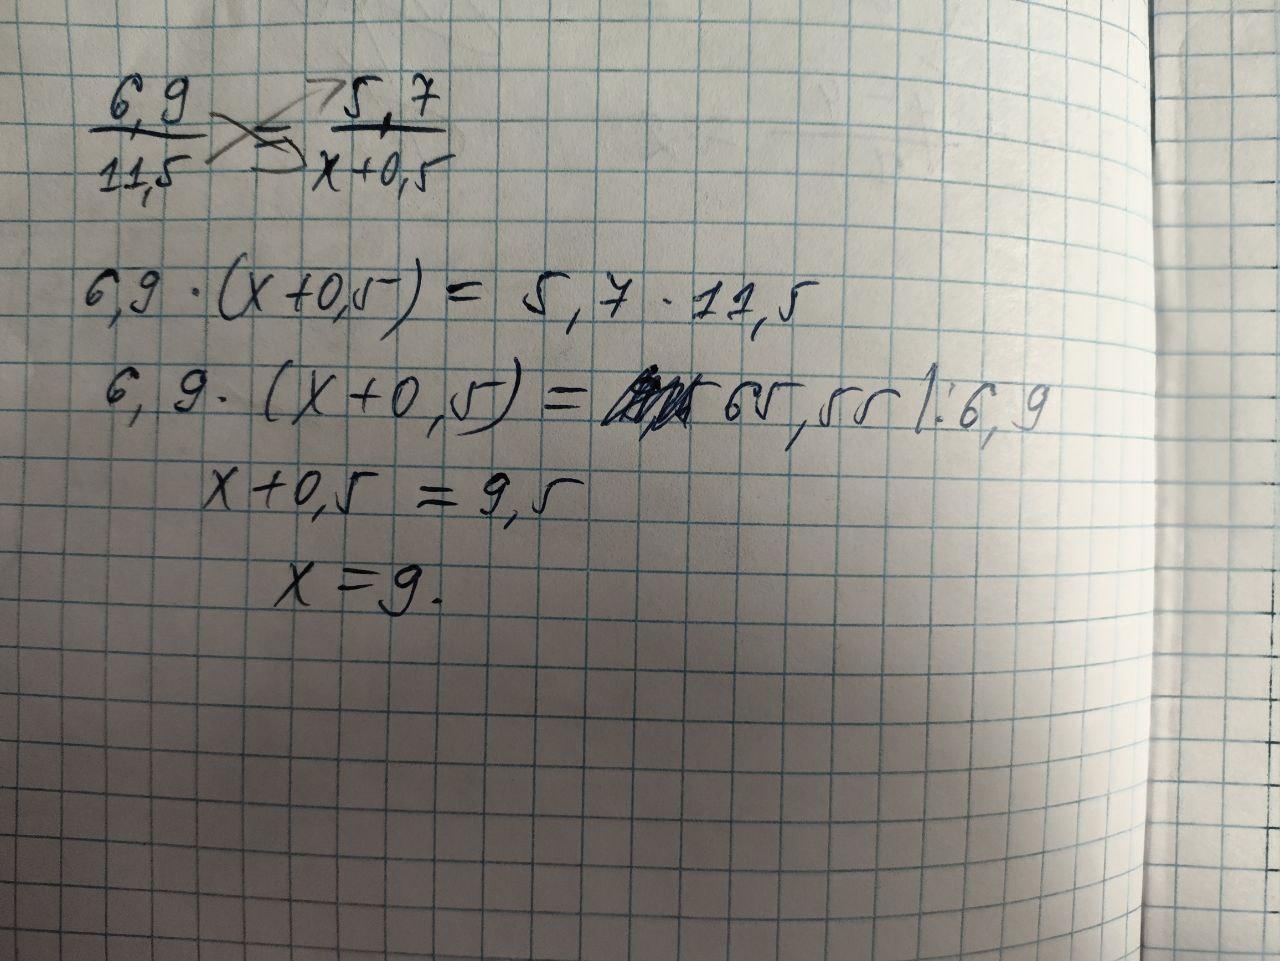 6,9 = 5,7
11,5 x+0,5
6,9 · (x+0,5) = 5,7 · 11,5
6,9 · (x+0,5) = 65,55 |:6,9
x+0,5 = 9,5
x = 9.